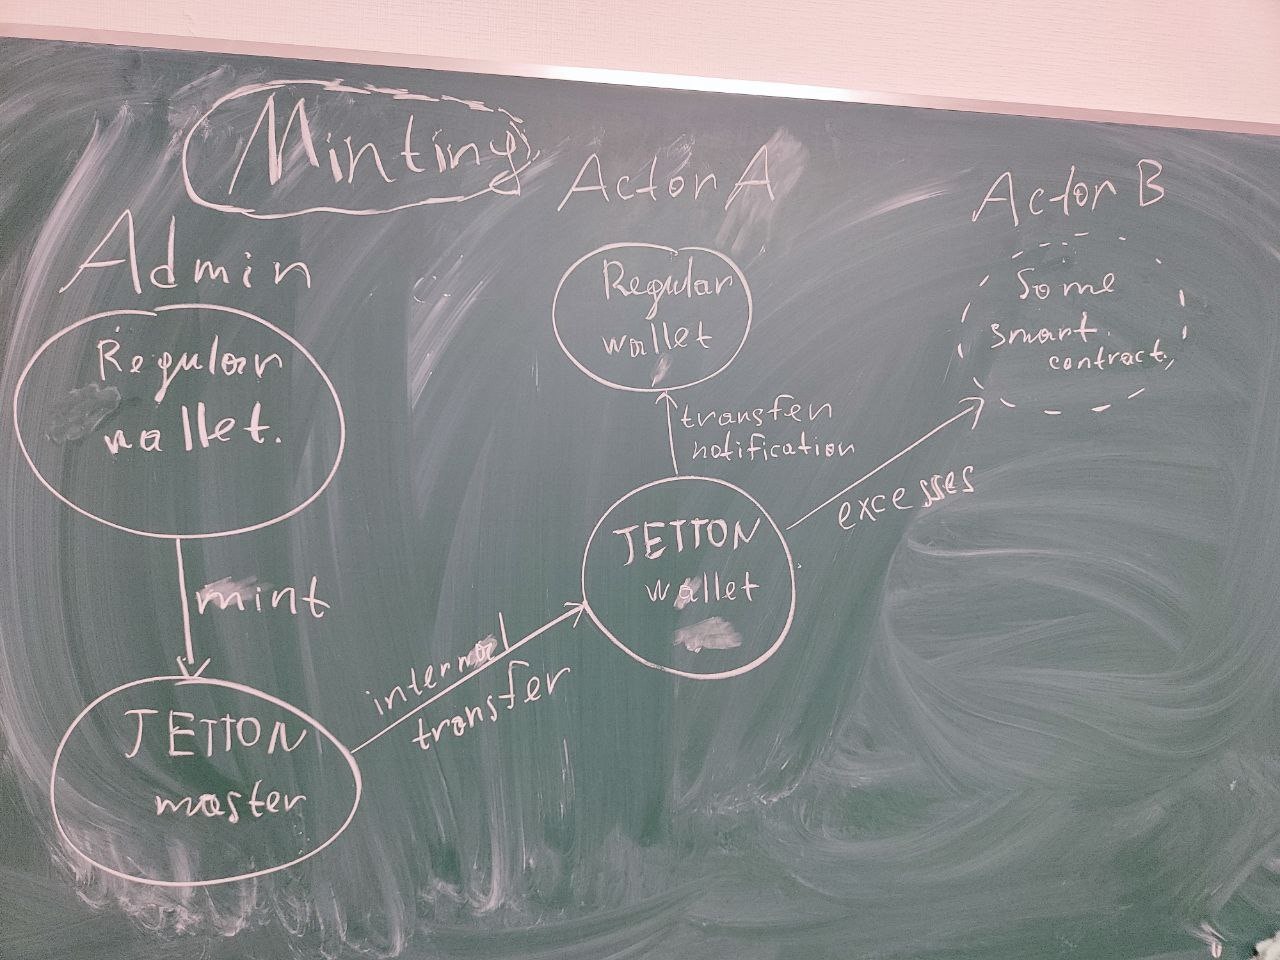 Minting
Admin
Regular
wallet.
mint
JETTON
master
internal
transfer
Actor A
Regular
wallet
transfer
notification
JETTON
wallet
excesses
Actor B
Some
smart
contract